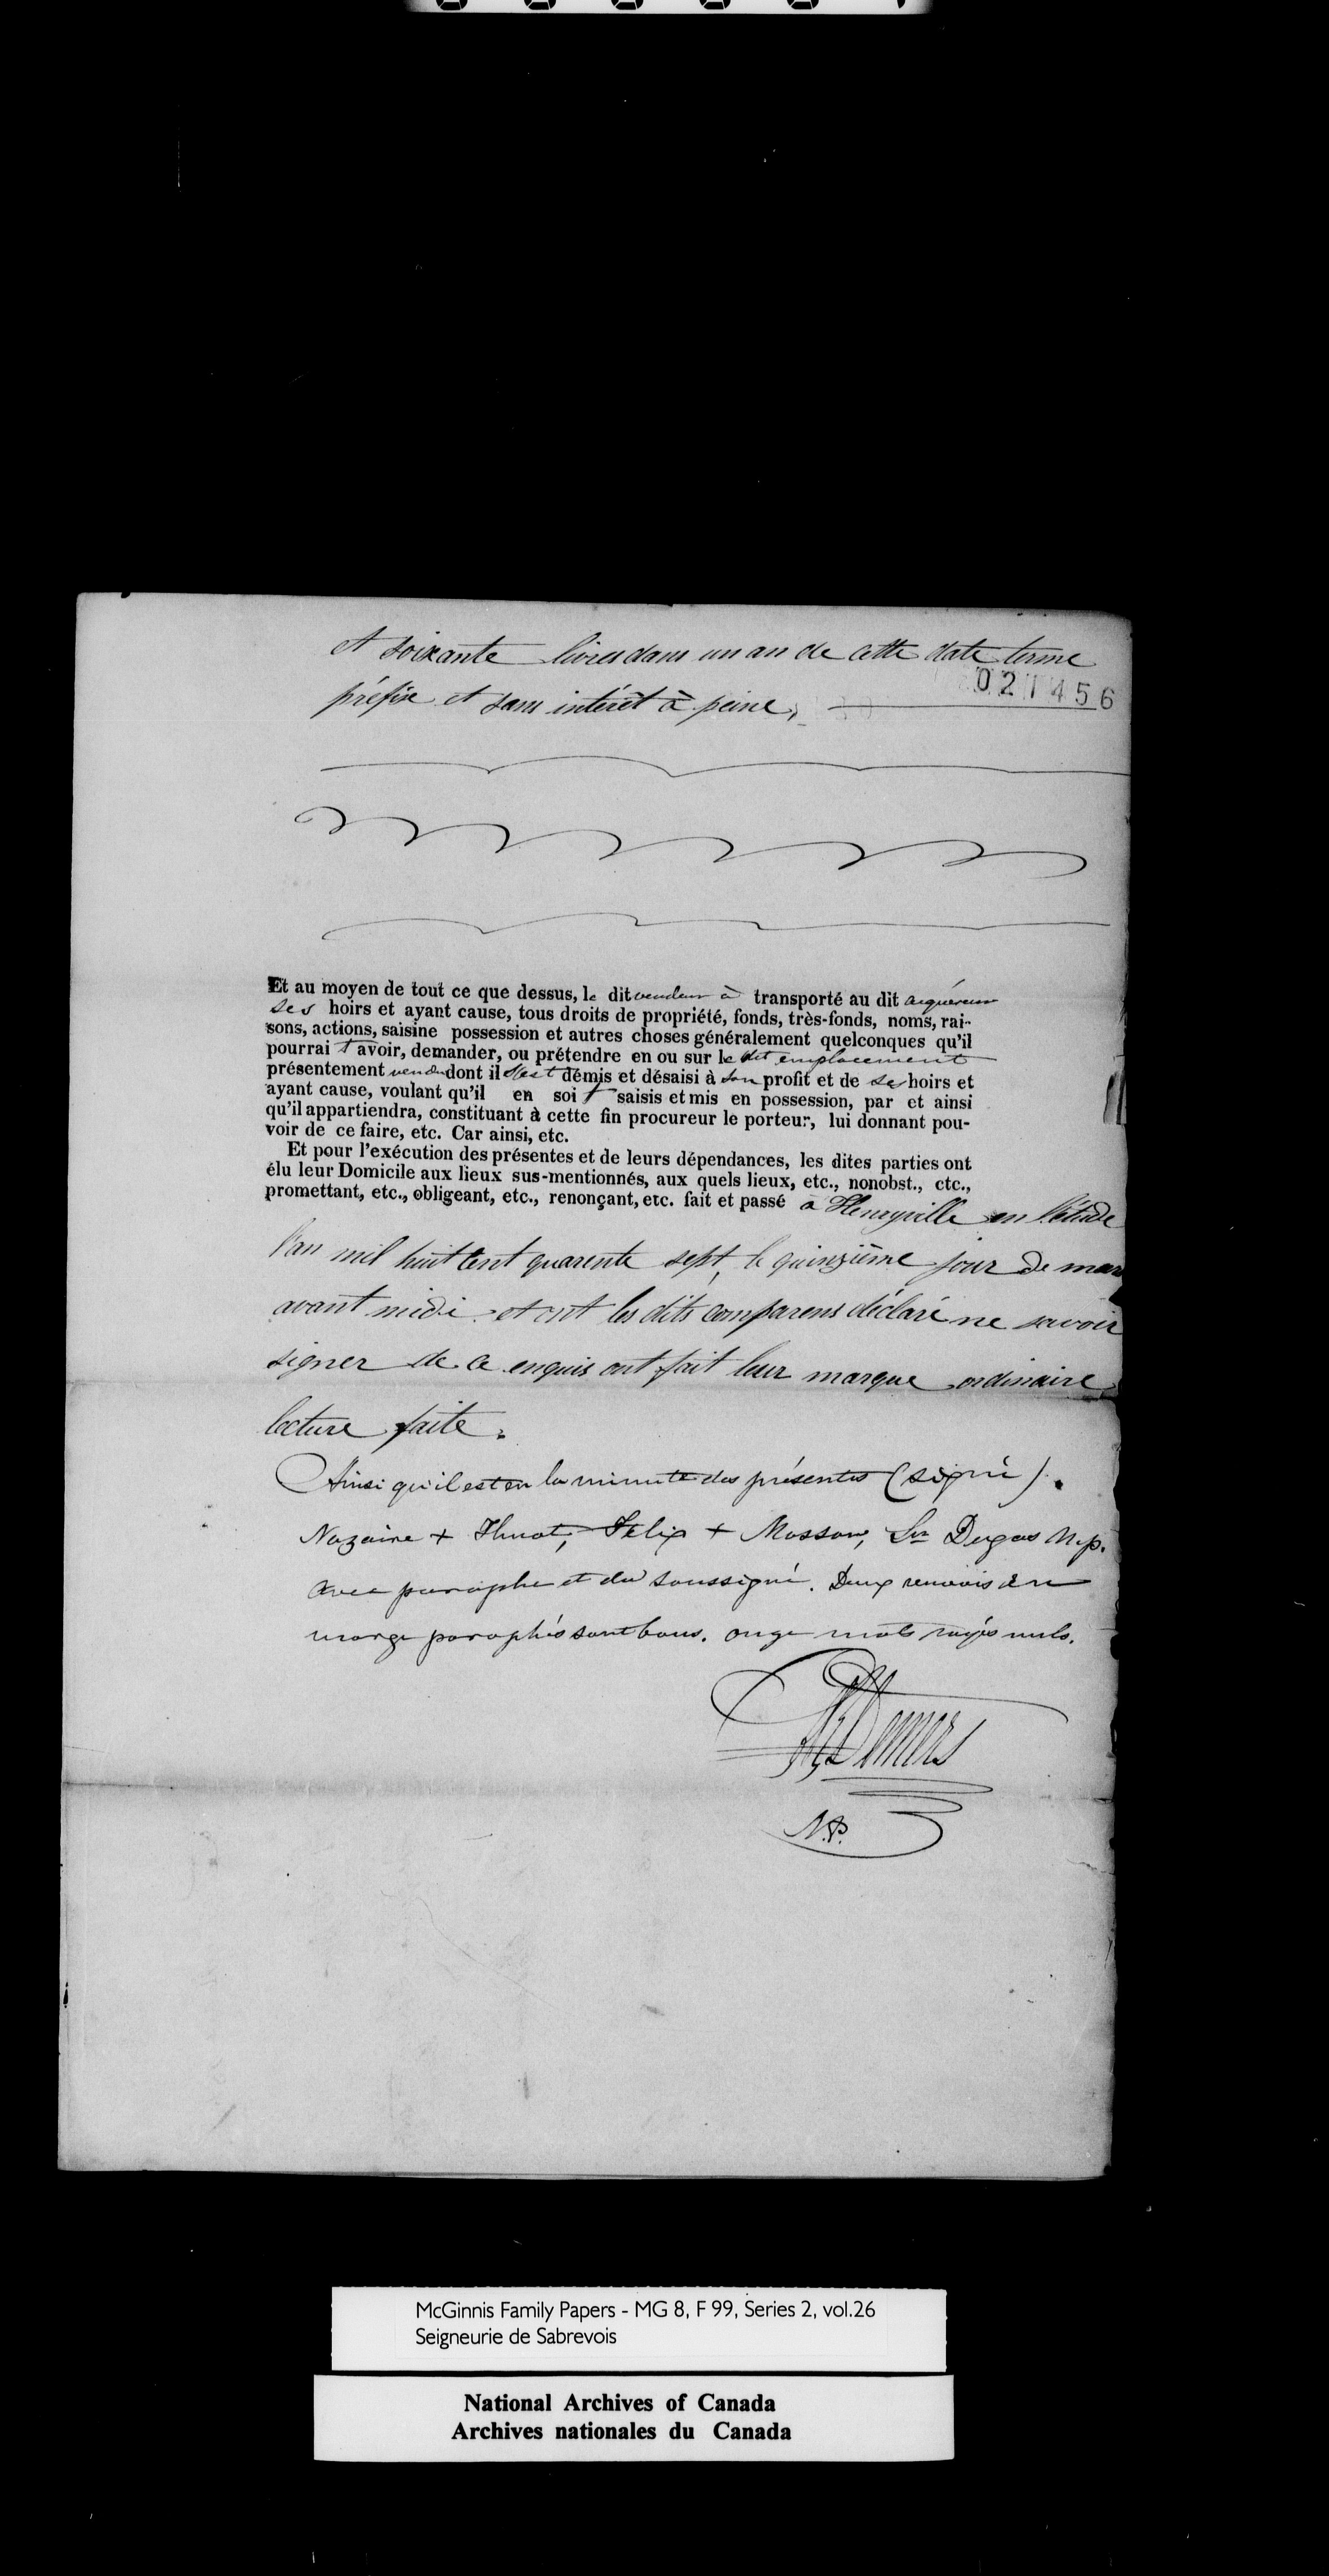 et soixante livres dans un an de cette date terme
021456
préfixe et sans intérêt à peine,
Et au moyen de tout ce que dessus, le dit vendeur à transporté au dit acquéreur
ses hoirs et ayant cause, tous droits de propriété, fonds, très-fonds, noms, rai-
sons, actions, saisine possession et autres choses généralement quelconques qu'il
pourrai t avoir, demander, ou prétendre en ou sur le dit emplacement
présentement vendu dont il s'est démis et désaisi à son profit et de ses hoirs et
ayant cause, voulant qu'il en soi t saisis et mis en possession, par et ainsi
qu'il appartiendra, constituant à cette fin procureur le porteur, lui donnant pou-
voir de ce faire, etc. Car ainsi, etc.
Et pour l'exécution des présentes et de leurs dépendances, les dites parties ont
élu leur Domicile aux lieux sus-mentionnés, aux quels lieux, etc., nonobst., etc.,
promettant, etc., obligeant, etc., renonçant, etc. fait et passé à Henryville en l'étude
l'an mil huit cent quarente sept, le quinzième jour de mars
avant midi et ont les dits comparens déclaré ne savoir
signer de ce enquis ont fait leur marque ordinaire
lecture faite.
Ainsi qu'il est en la minute des présentes (signé).
Nazaire + Huot, Félix + Masson, Dugas N.p.
avec paraphe et du soussigné. Deux renvois en
marge paraphés sont bons. onze mots rayés nuls.
Demers
N.P.
McGinnis Family Papers - MG 8, F 99, Series 2, vol.26
Seigneurie de Sabrevois
National Archives of Canada
Archives nationales du Canada